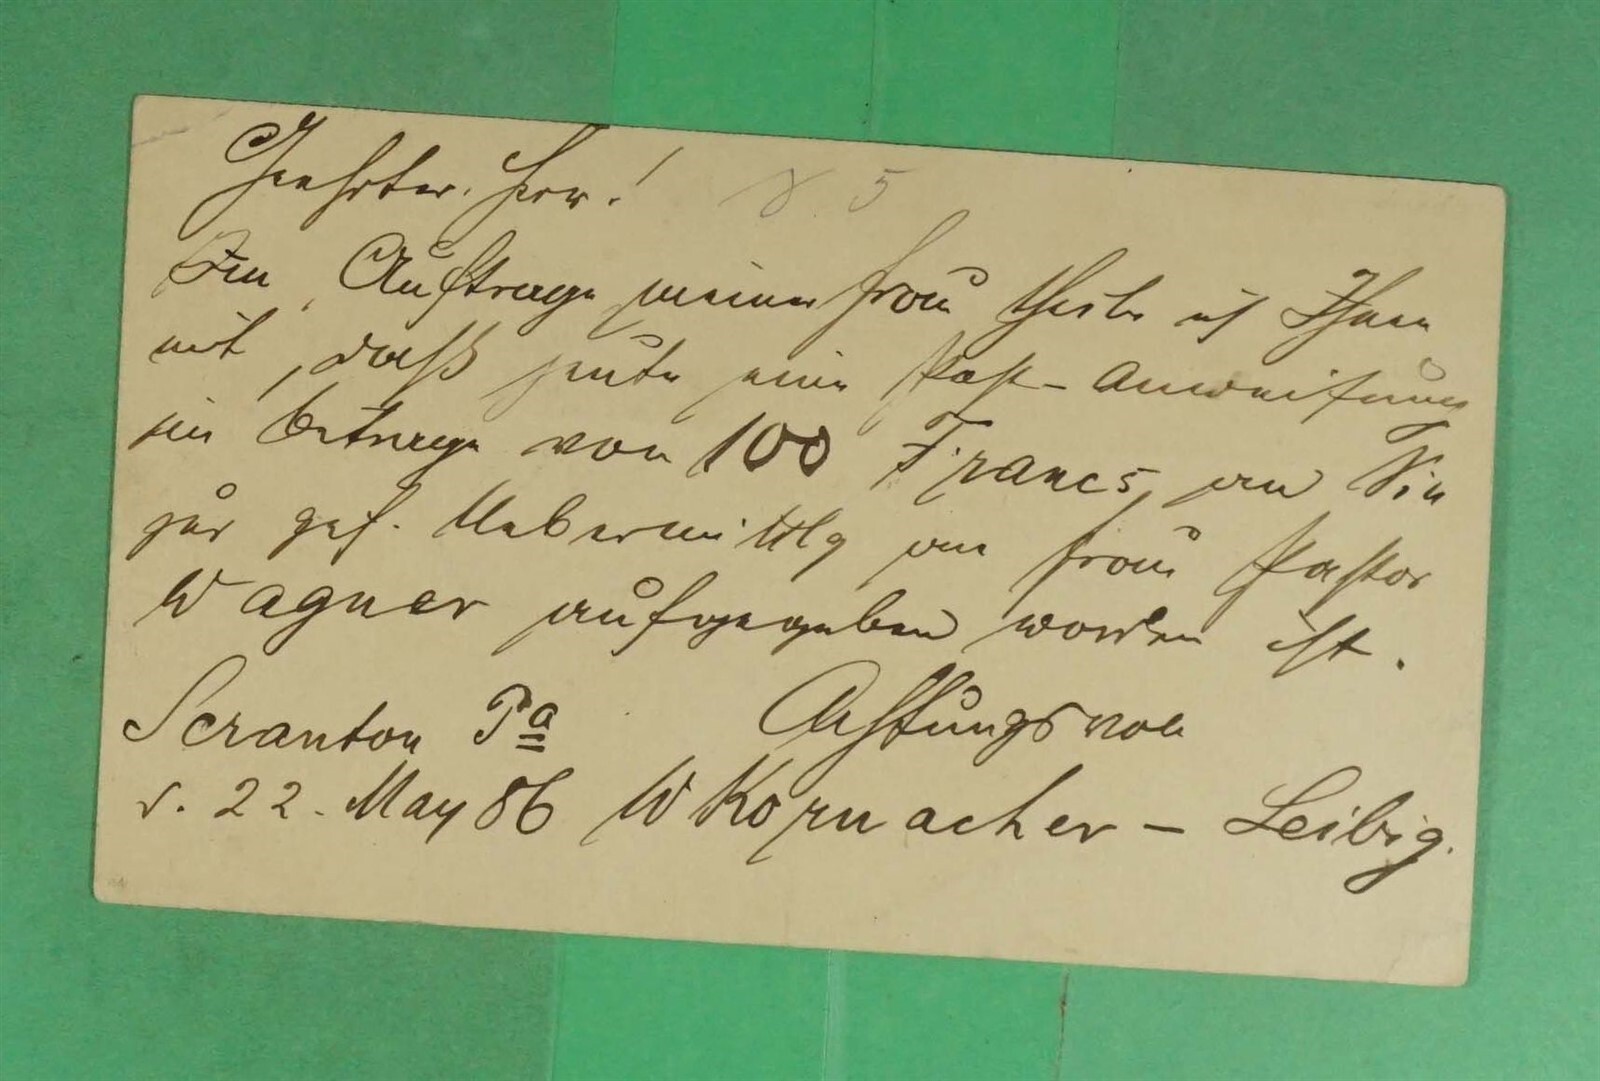 Geehrter Herr!
5
Im Auftrage meiner Frau theile ich Ihnen
mit, daß heute eine Post-Anweisung
im Betrage von 100 Francs, an Sie
zur gef. Uebermittlg an Frau Pastor
Wagner aufgegeben worden ist.
Achtungsvoll
Scranton Pa
d. 22. May 86 W Kornacher - Leibig.